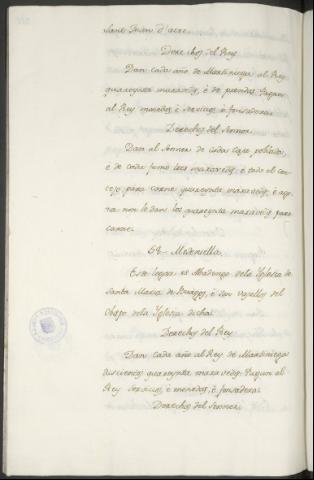 Sant Juan d'acre.
Derechos del Rey
Dan cada año de Martiniega al Rey
quarenta maravedis, è de
al Rey monedas è servicios è fonsadera.
Derechos del Sennor.
Dan al Sennor de cada casa poblada,
è de cada fumo tres maravedis, è todo el con-
cejo para carne quarenta maravedis, è ago-
ra non le dan los quarenta maravedis para
carne.
58. Medeniella.
Este logar es Abadengo dela Iglesia de
Santa Maria de Burgos, è son vasallos del
Obispo dela Iglesia dicha.
Derechos del Rey
Dan cada año al Rey de Martiniega
duscientos quarenta maravedis. Pagan al
Rey servicios, è monedas, è fonsadera.
Derechos del Sennor.